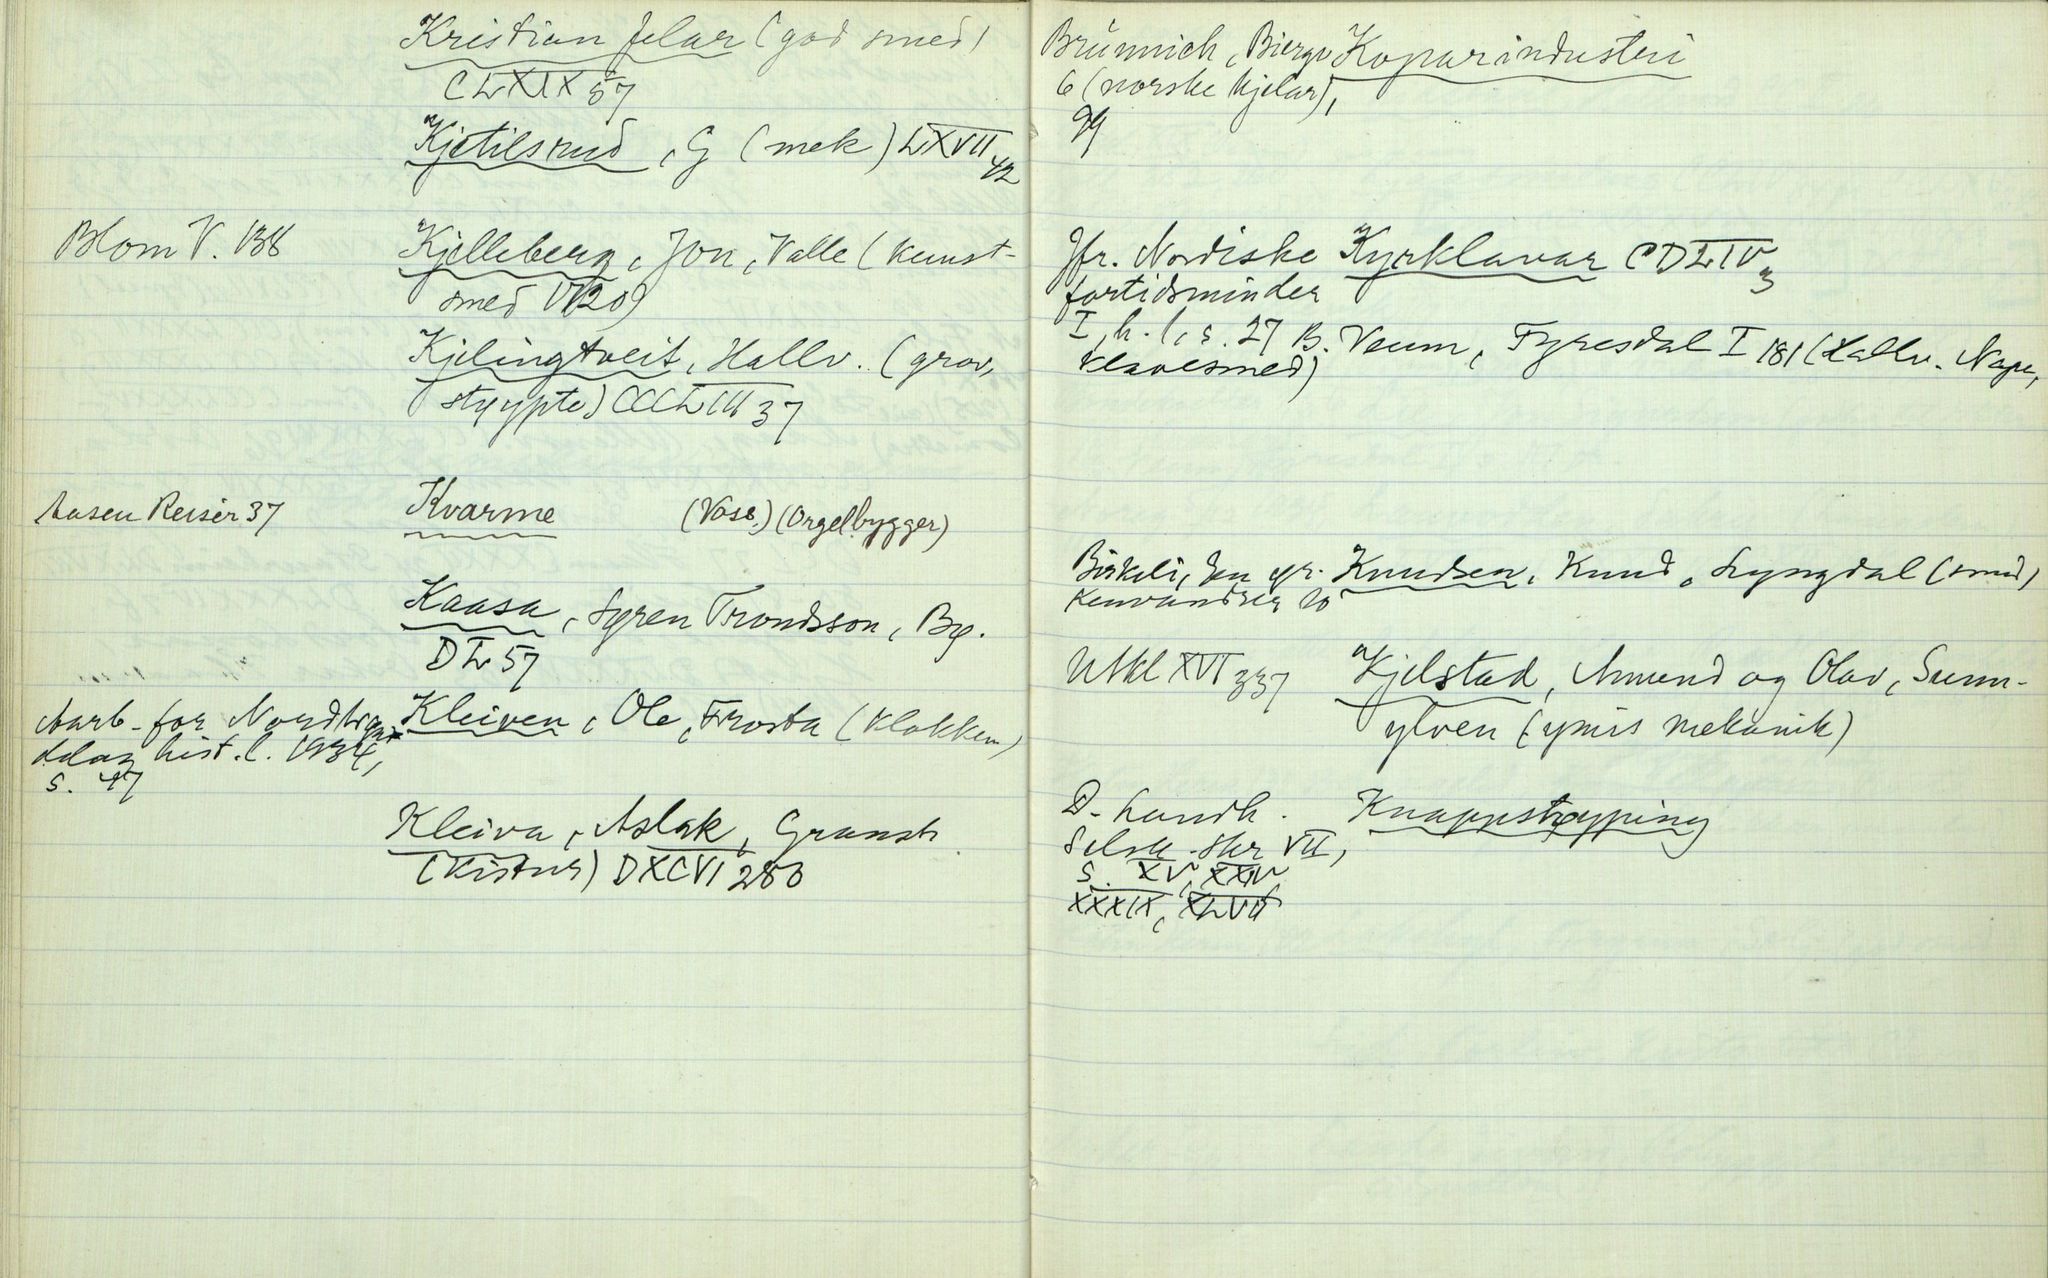 Kristian felar (god smed)
CLXIX 57
Kjetilsrud, G (mek) LXVII 42
Blom V. 138
Kjelleberg, Jon, Valle (kunst-
smed VI 20)
Kjelingtveit, Hallv. (grov,
støypte) CCCLIII 37
Aasen Reiser 37
Kvarme (Voss) (Orgelbygger)
Kaasa, Syren Trondsson, Bø.
DL 57
Aarb. for Nordtrønd-
elag hist. l. 1934,
s. 47
Kleiven, Ole, Frosta (klokkem)
Kleiva, Aslak, Gransh.
(kistur) DXCVI 280
Brünnich, Biergv. Koparindustri
6 (norske kjelar),
99
Jfr. Nordiske Kyrklavar CDLIV 3
fortidsminder
I, h. 1, s. 27 B. Veum, Fyresdal I 181 (Hallv. Nape,
klavesmed)
Birkeli, En gr. Knudsen, Knud, Lyngdal (smed)
10
Utkl XVI 337
Kjelstad, Amund og Olav, Sunn-
ylven (ymis mekanik)
D. Landh.
Selsk. Skr VII,
s. XV, XXIV
XXXIX, XLVII
Knappstøyping